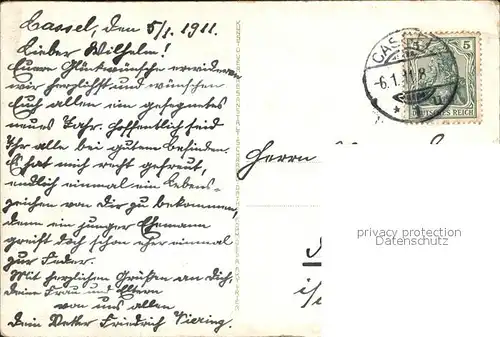 Cassel, den 5/1. 1911.
Lieber Wilhelm!
Eure Glückwünsche erwidern
wir herzlichst und wünschen
Euch allen ein gesegnetes
neues Jahr. Hoffentlich seid
Ihr alle bei gutem Befinden.
Es hat mich recht gefreut,
endlich einmal ein Lebens-
zeichen von Dir zu bekommen,
denn ein junger Ehemann
greift doch schon eher einmal
zur Feder.
Mit herzlichen Grüßen an Dich,
Deine Frau und Eltern
von uns allen
Dein Vetter Friedrich Viering.
CASSEL
-6.1.11.8
5
DEUTSCHES REICH
Herrn
privacy protection
Datenschutz